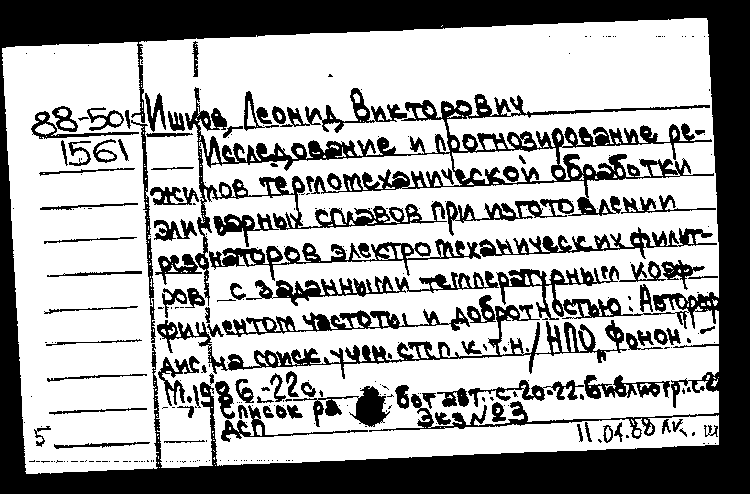 88-501с Ишков, Леонид Викторович.
1561 Исследование и прогнозирование ре-
жимов термомеханической обработки
элинварных сплавов при изготовлении
резонаторов электромеханических фильт-
ров с заданными температурным коэф-
фициентом частоты и добротностью: Автореф
дис. на соиск. учен. степ. к.т.н. / НПО „Фонон". -
М., 1986. - 22с.
Список ра бот авт.: с. 20-22. Библиогр.: с. 22
ДСП Экз №23
5 11.04.88